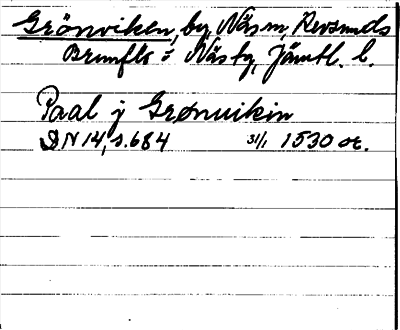 Grönviken, by, Näs sn, Revsunds
Brunflo o Näs tg, Jämtl. l.
Paal j Grønuikin
DN 14, s. 684 31/1 1530 or.